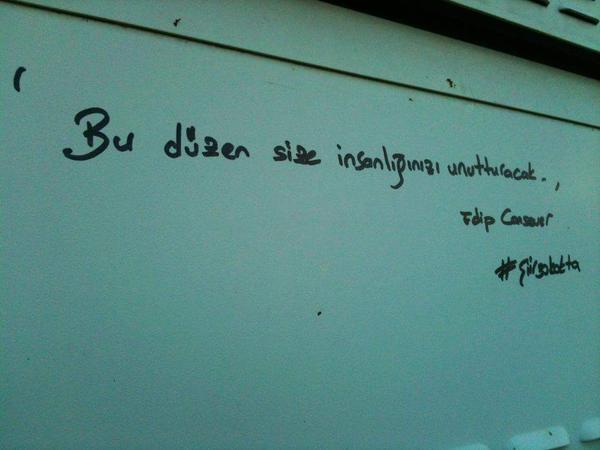 ' Bu düzen size insanlığınızı unutturacak. ,
Edip Cansever
#şiirsokakta